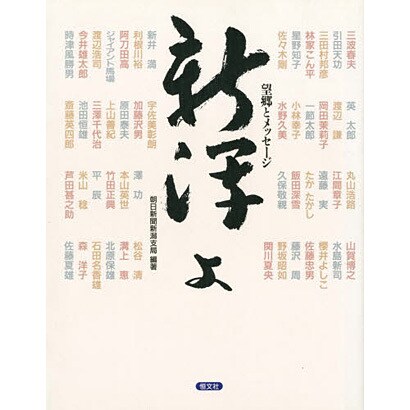 三波春夫
引田天功
三田村邦彦
林家こん平
星野知子
佐々木剛
英 太郎
渡辺 謙
岡田茉莉子
一節太郎
小林幸子
水野久美
丸山浩路
江間章子
遠藤 実
たか たかし
飯田深雪
久保敬親
山賀博之
水島新司
櫻井よしこ
佐藤忠男
藤沢 周
野坂昭如
関川夏央
望郷とメッセージ
新潟よ
朝日新聞新潟支局 編著
新井 満
利根川裕
阿刀田高
ジャイアント馬場
渡辺浩司
今井雄太郎
時津風勝男
宇佐美彰朗
加藤沢男
原田泰夫
上山善紀
三澤千代治
池田恒雄
斎藤英四郎
澤 功
本山英世
竹田正興
平 辰
米山 稔
芦田甚之助
松谷 清
溝上 恵
北原保雄
石田名香雄
森 洋子
佐藤夏雄
恒文社